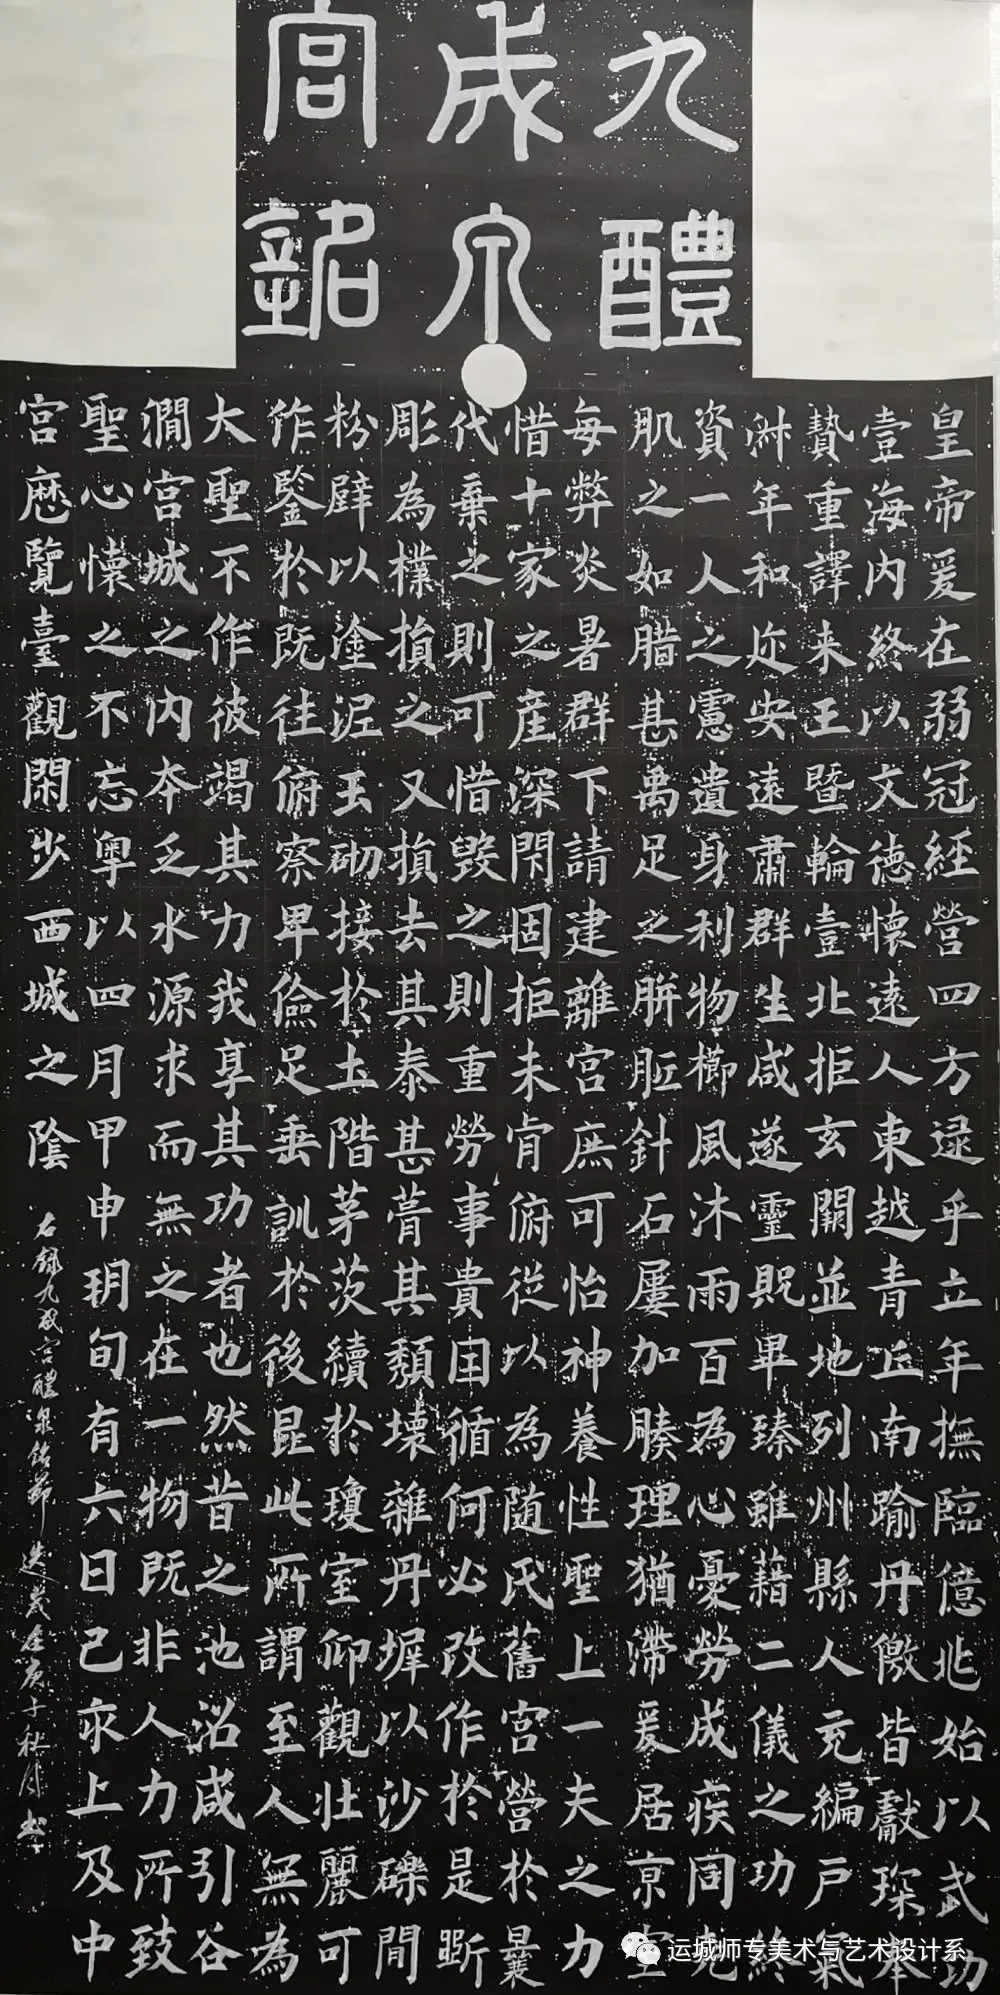 九成宮
醴泉銘
皇帝爰在弱冠經營四方逯乎立年撫臨億兆始以武功
壹海内終以文德懷遠人東越青丘南踰丹儌皆獻琛奉
贄重譯来王暨輪壹北拒玄闕並地列州縣人充編戶氣
淑年和迩安遠肅群生咸遂靈貺畢臻雖藉二儀之功終
資一人之慮遺身利物櫛風沐雨百為心憂勞成疾同尭
肌之如腊甚禹足之胼胝針石屢加腠理猶滯爰居京室
每弊炎暑群下請建離宮庶可怡神養性聖上一夫之力
惜十家之産深閇固拒未肯俯從以為随氏舊宮營於曩
代棄之則可惜毀之則重勞事貴因循何必改作於是斲
彫為樸損之又損去其泰甚葺其頹壞雜丹墀以沙礫間
粉壁以塗泥玉砌接於土階茅茨續於瓊室仰觀壮麗可
作鑒於既往俯察卑儉足垂訓於後昆此所謂至人無為
大聖不作彼竭其力我享其功者也然昔之池沼咸引谷
澗宮城之内本乏水源求而無之在一物既非人力所致
聖心懷之不忘粤以四月甲申朔旬有六日己亥上及中
宮歷覽臺觀閑步西城之陰
右録九成宫醴泉銘節选 歲在庚子秋月书
运城师专美术与艺术设计系